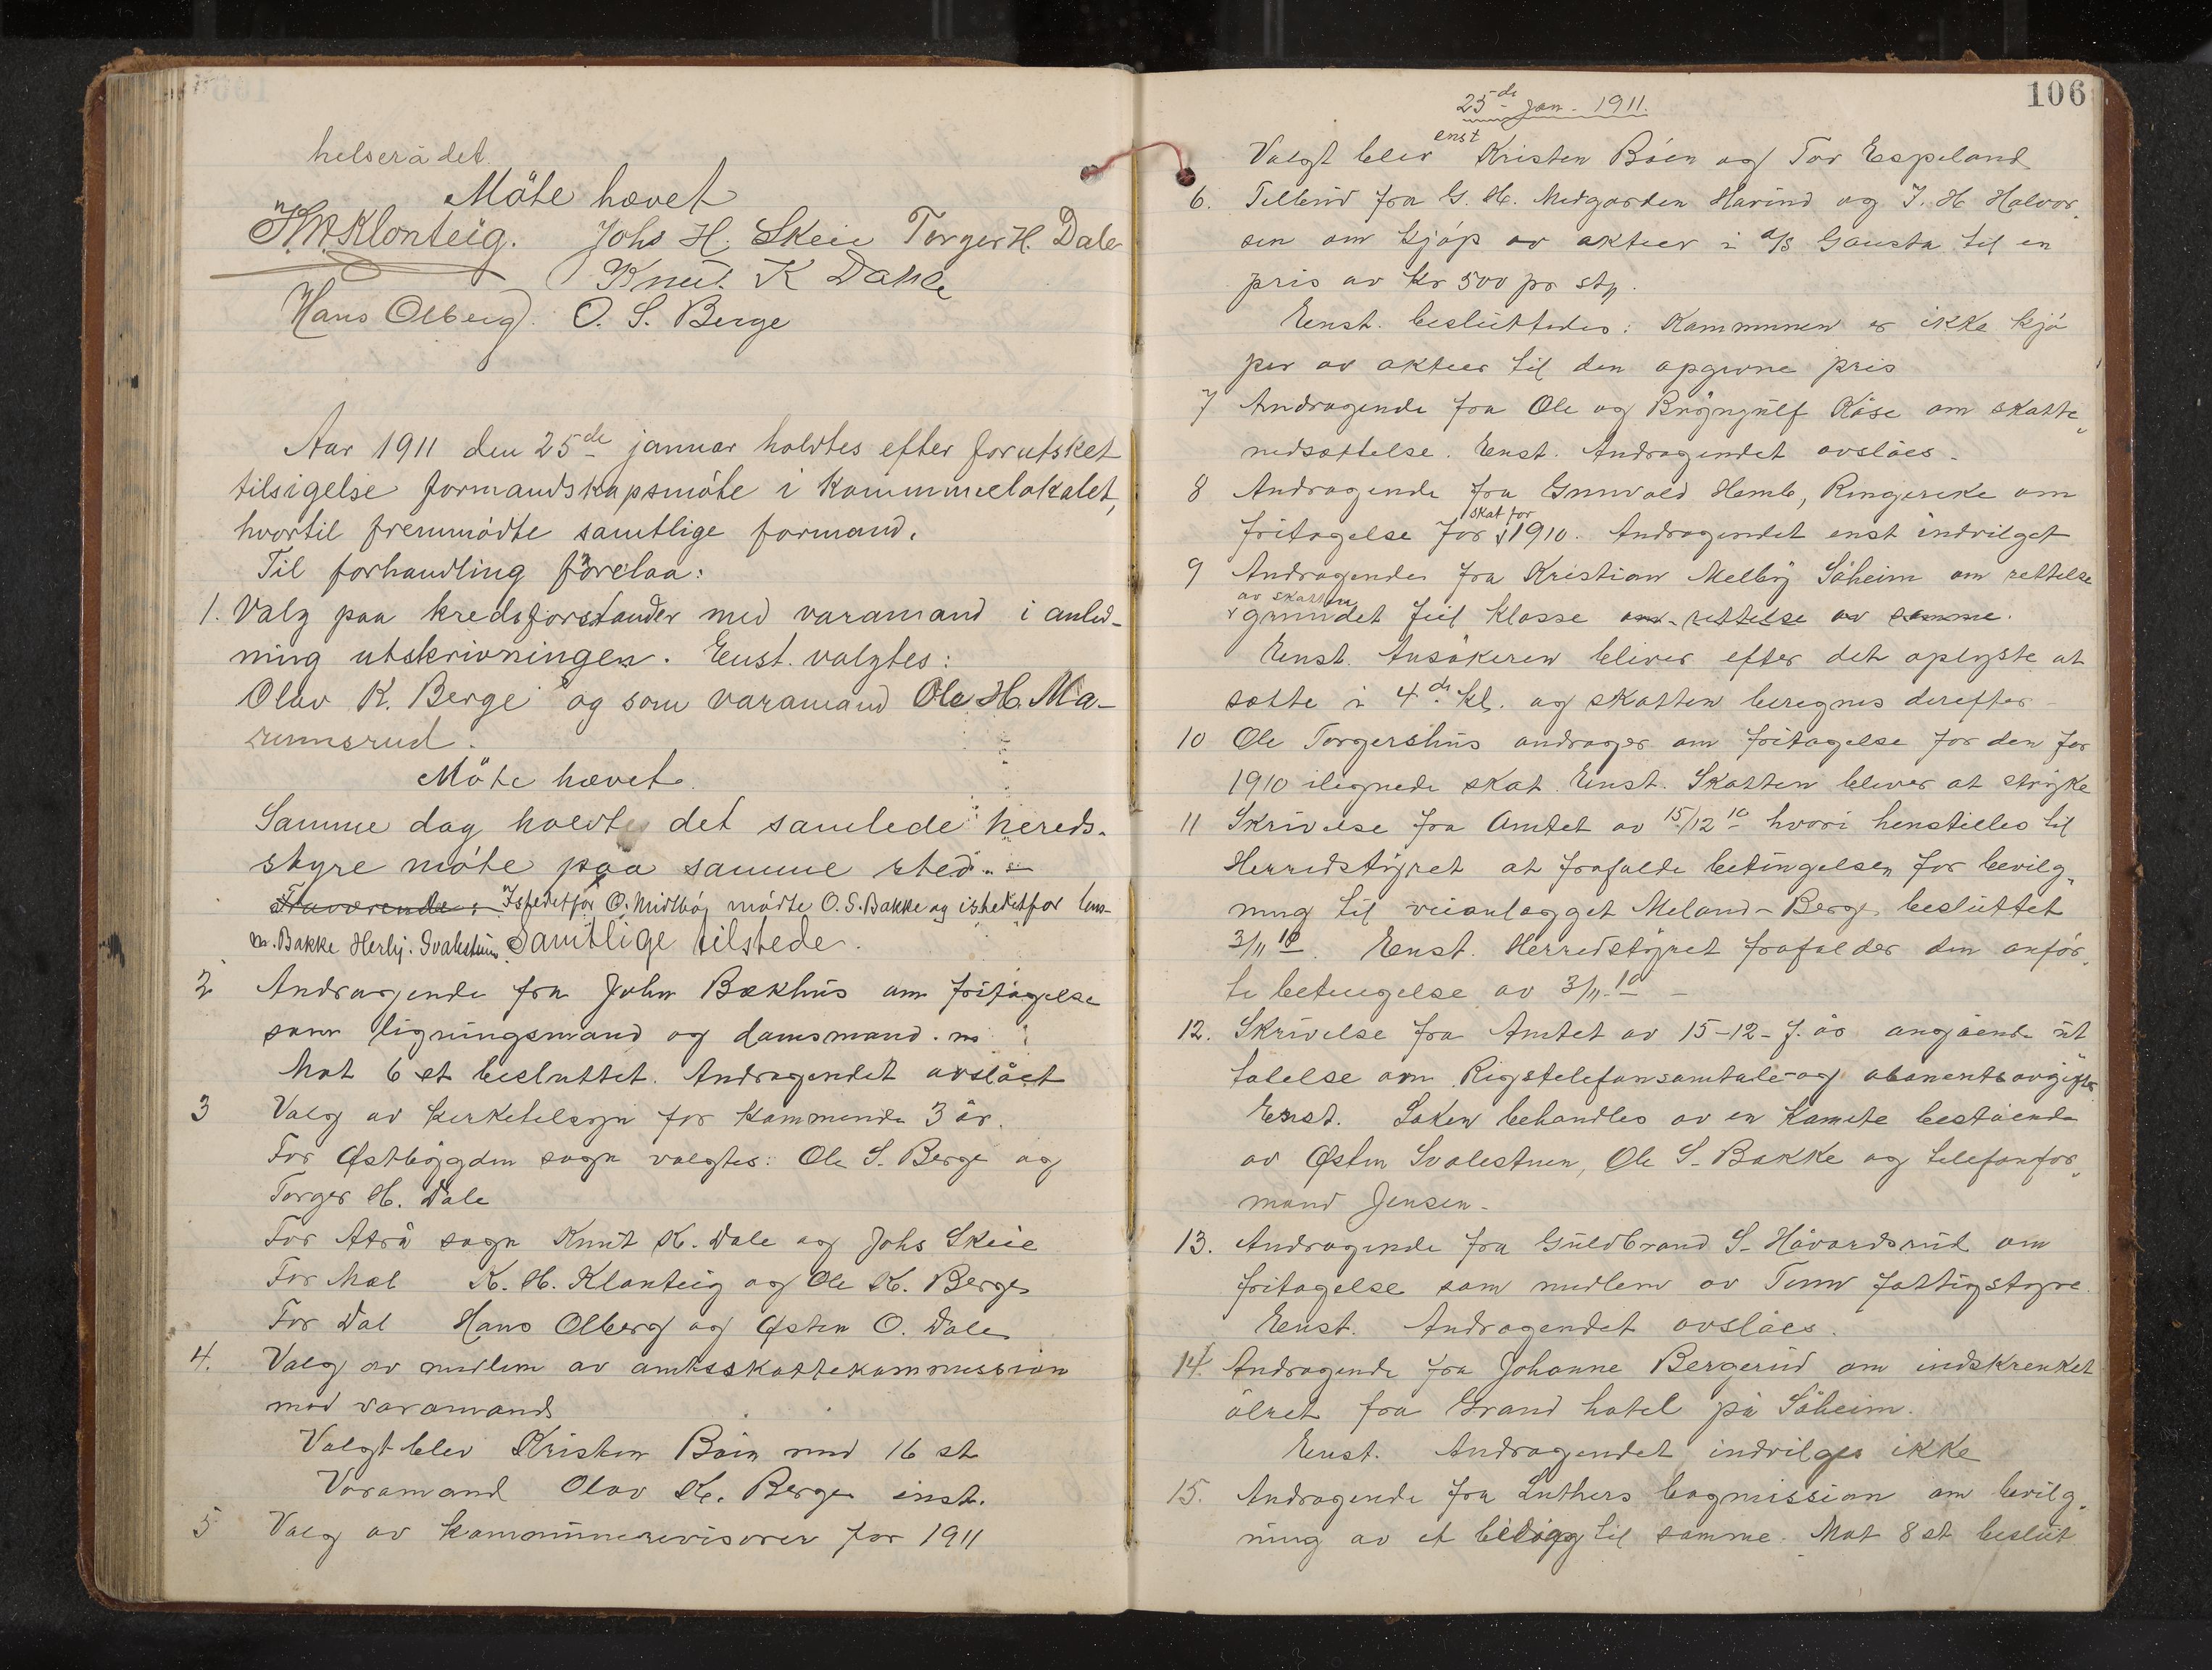 helserådet.
Möte hævet
K. H. Klonteig. Johs H. Skeie Torger H. Dale
Knut K Dahle
Hans Olberg. O. S. Berge
Aar 1911 den 25de januar holdtes efter forutsket
tilsigelse formandskapsmöte i Kommunelokalet,
hvortil fremmödte samtlige formænd.
Til forhandling forelaa:
1. Valg paa kredsforstander med varamand i anled-
ning utskrivningen. Enst. valgtes:
Olav K. Berge og som varamand Ole H. Ma-
runnsrud.
Möte hævet.
Samme dag holdtes det samlede hereds-
styre möte paa samme sted.
Fraværende: Istedetfor O. Midtböj mödte O. S. Bakke og istedetfor
Bakke Herbj. Svalestuen. Samtlige tilstede.
2 Andragende fra John Bækhus om fritagelse
som ligningsmand og domsmand.
Mot 6 st besluttet. Andragendet avslået
3 Valg av kirketilsyn for kommende 3 år.
For Østbygden sogn valgtes: Ole S. Berge og
Torger H. Dale
For Atrå sogn Knut K. Dale og Johs Skeie
For Mæl K. H. Klonteig og Ole K. Berge
For Dal Hans Olberg og Østen O. Dale
4. Valg av medlem av amtsskattekommission
med varamand
Valgt blev Kristen Böen med 16 st
Varamand Olav K. Berge enst.
5 Valg av kommunerevisorer for 1911
106
25de jan. 1911.
Valgt blev enst Kristen Böen og Tor Espeland
6. Tilbud fra G. H. Midgarden Hovind og J. H Halvor„
sen om kjöp av aktier i a/s Gausta til en
pris av kr 500 pr stk.
Enst. besluttedes: Kommunen er ikke kjö
per av aktier til den opgivne pris
7 Andragende fra Ole og Brynjulf Kåse om skatte„
nedsættelse. Enst. Andragendet avslåes.
8 Andragende fra Gunvald Hemb, Ringerike om
fritagelse for skat for 1910. Andragendet enst indvilget
9 Andragende fra Kristian Melby Såheim om rettelse
av skatten grundet feil klasse om rettelse av samme.
Enst. Ansökeren bliver efter det oplyste at
sætte i 4de kl. og skatten beregnes derefter
10 Ole Torgershus andrager om fritagelse for den for
1910 ilignede skat. Enst. Skatten bliver at stryke
11 Skrivelse fra Amtet av 15/12 10 hvori henstilles til
Herredstyret at frafalde betingelsen for bevilg„
ning til veianlægget Meland-Berge besluttet
3/11 10. Enst. Herredstyret frafalder den anför„
te betingelse av 3/11. 10 –
12. Skrivelse fra Amtet av 15-12- f. år angående ut
talelse om Rigstelefonsamtale- og abonentsavgifter
Enst. Saken behandles av en Komite bestående
av Østen Svalestuen, Ole S. Bakke og telefonfor„
mand Jensen.
13. Andragende fra Guldbrand S. Håvardsrud om
fritagelse som medlem av Tinn fattigstyre.
Enst. Andragendet avslåes.
14. Andragende fra Johanne Bergerud om indskrenket
ölret fra Grand hotel på Såheim.
Enst. Andragendet indvilges ikke
15. Andragende fra Luthers bogmission om bevilg„
ning av et bidrag til samme. Mot 8 st beslut